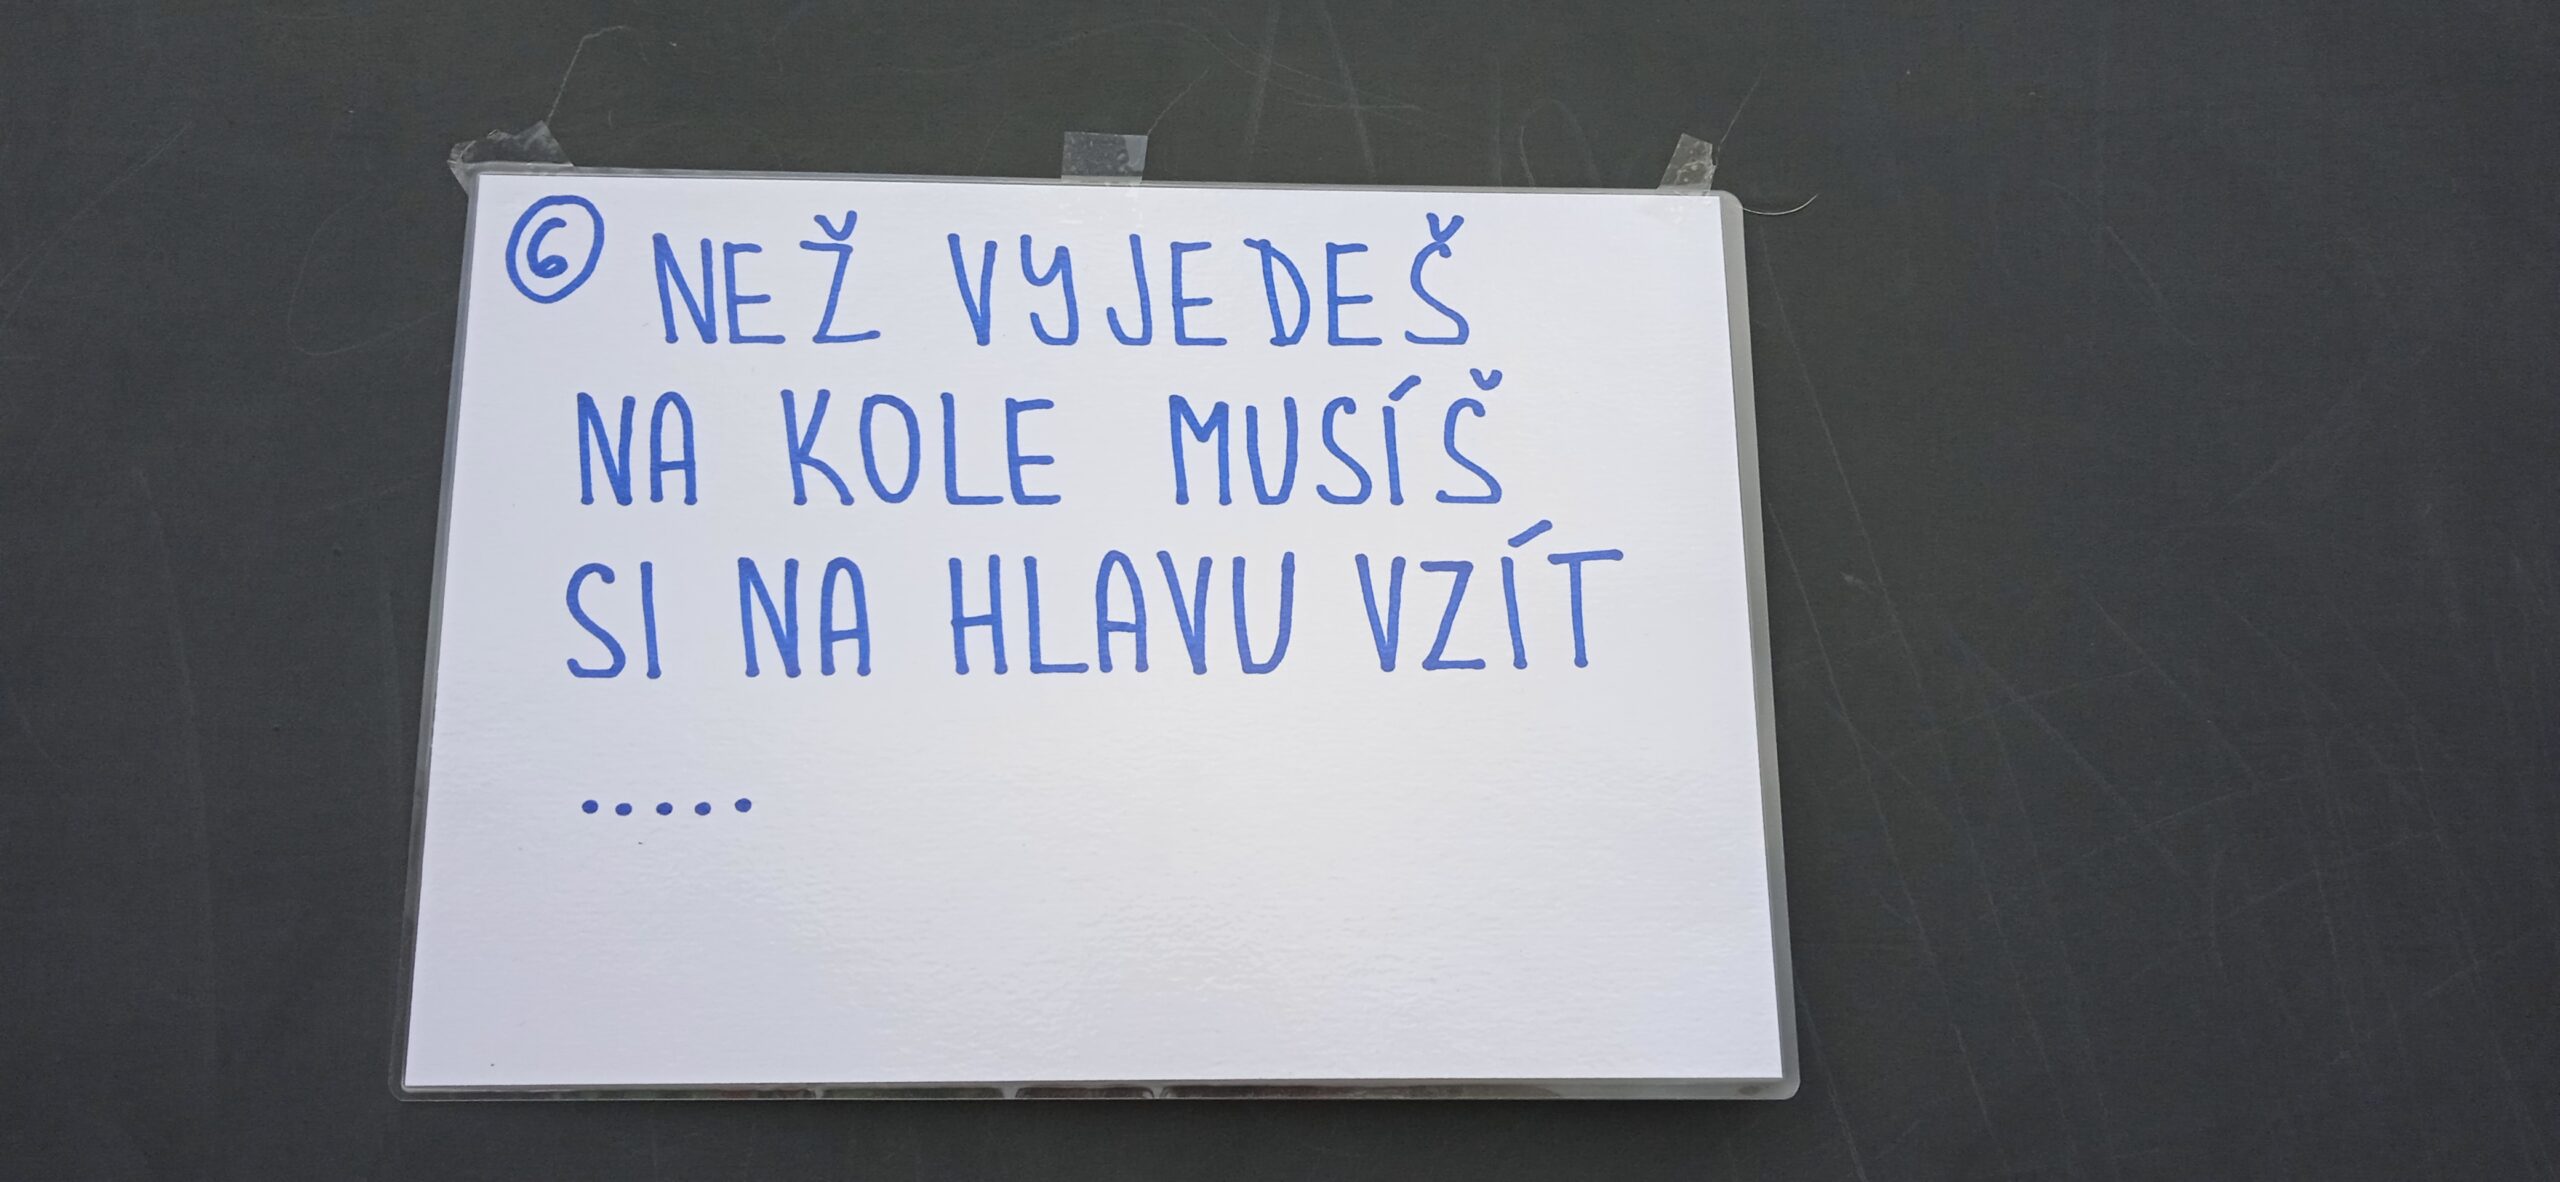 6 NEŽ VYJEDEŠ
NA KOLE MUSÍŠ
SI NA HLAVU VZÍT
.....